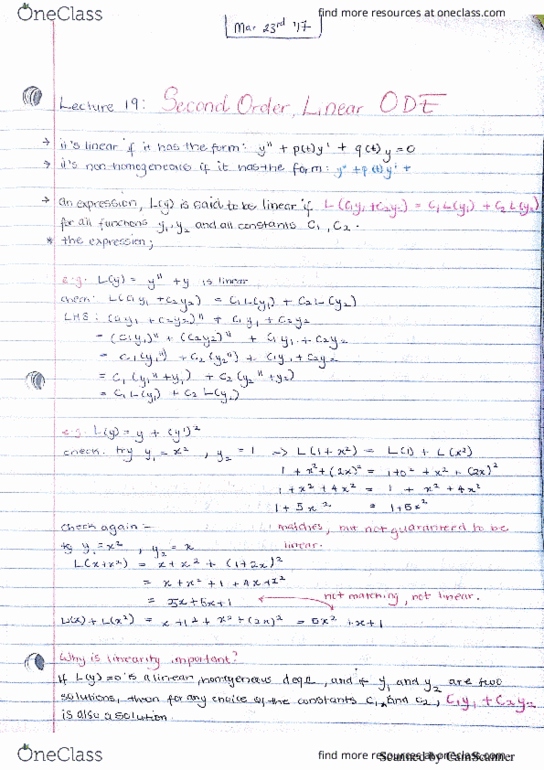 OneClass
find more resources at oneclass.com
Mar 23rd '17
Lecture 19: Second Order, Linear ODE
→ it's linear if it has the form: y" + p(t)y' + q(t)y = 0
→ it's non homogeneous if it has the form: y" + p(t)y' +
→ an expression, L(y) is said to be linear if L(c₁y₁ + c₂y₂) = c₁L(y₁) + c₂L(y₂)
for all functions y₁, y₂ and all constants C₁, C₂.
* the expression;
e.g. L(y) = y" + y is linear
check: L(c₁y₁ + c₂y₂) = c₁L(y₁) + c₂L(y₂)
LHS: (c₁y₁ + c₂y₂)" + c₁y₁ + c₂y₂
= (c₁y₁)" + (c₂y₂)" + c₁y₁ + c₂y₂
= c₁(y₁") + c₂(y₂") + c₁y₁ + c₂y₂
= c₁(y₁" + y₁) + c₂(y₂" + y₂)
= c₁L(y₁) + c₂L(y₂)
e.g. L(y) = y + (y')²
check: try y₁ = x², y₂ = 1 → L(1+x²) = L(1) + L(x²)
1 + x² + (2x)² = 1+0² + x² + (2x)²
1 + x² + 4x² = 1 + x² + 4x²
1 + 5x² = 1+5x²
check again:- matches, but not guaranteed to be
try y₁ = x², y₂ = x linear.
L(x+x²) = x + x² + (1+2x)²
= x + x² + 1 + 4x + 4x²
= 5x + 5x² + 1 not matching, not linear.
L(x) + L(x²) = x + 1² + x² + (2x)² = 5x² + x + 1
Why is linearity important?
If L(y) = 0 is a linear, homogeneous deqn, and if y₁ and y₂ are two
solutions, then for any choice of the constants c₁ and c₂, c₁y₁ + c₂y₂
is also a solution
OneClass
find more resources at oneclass.com
Scanned by CamScanner